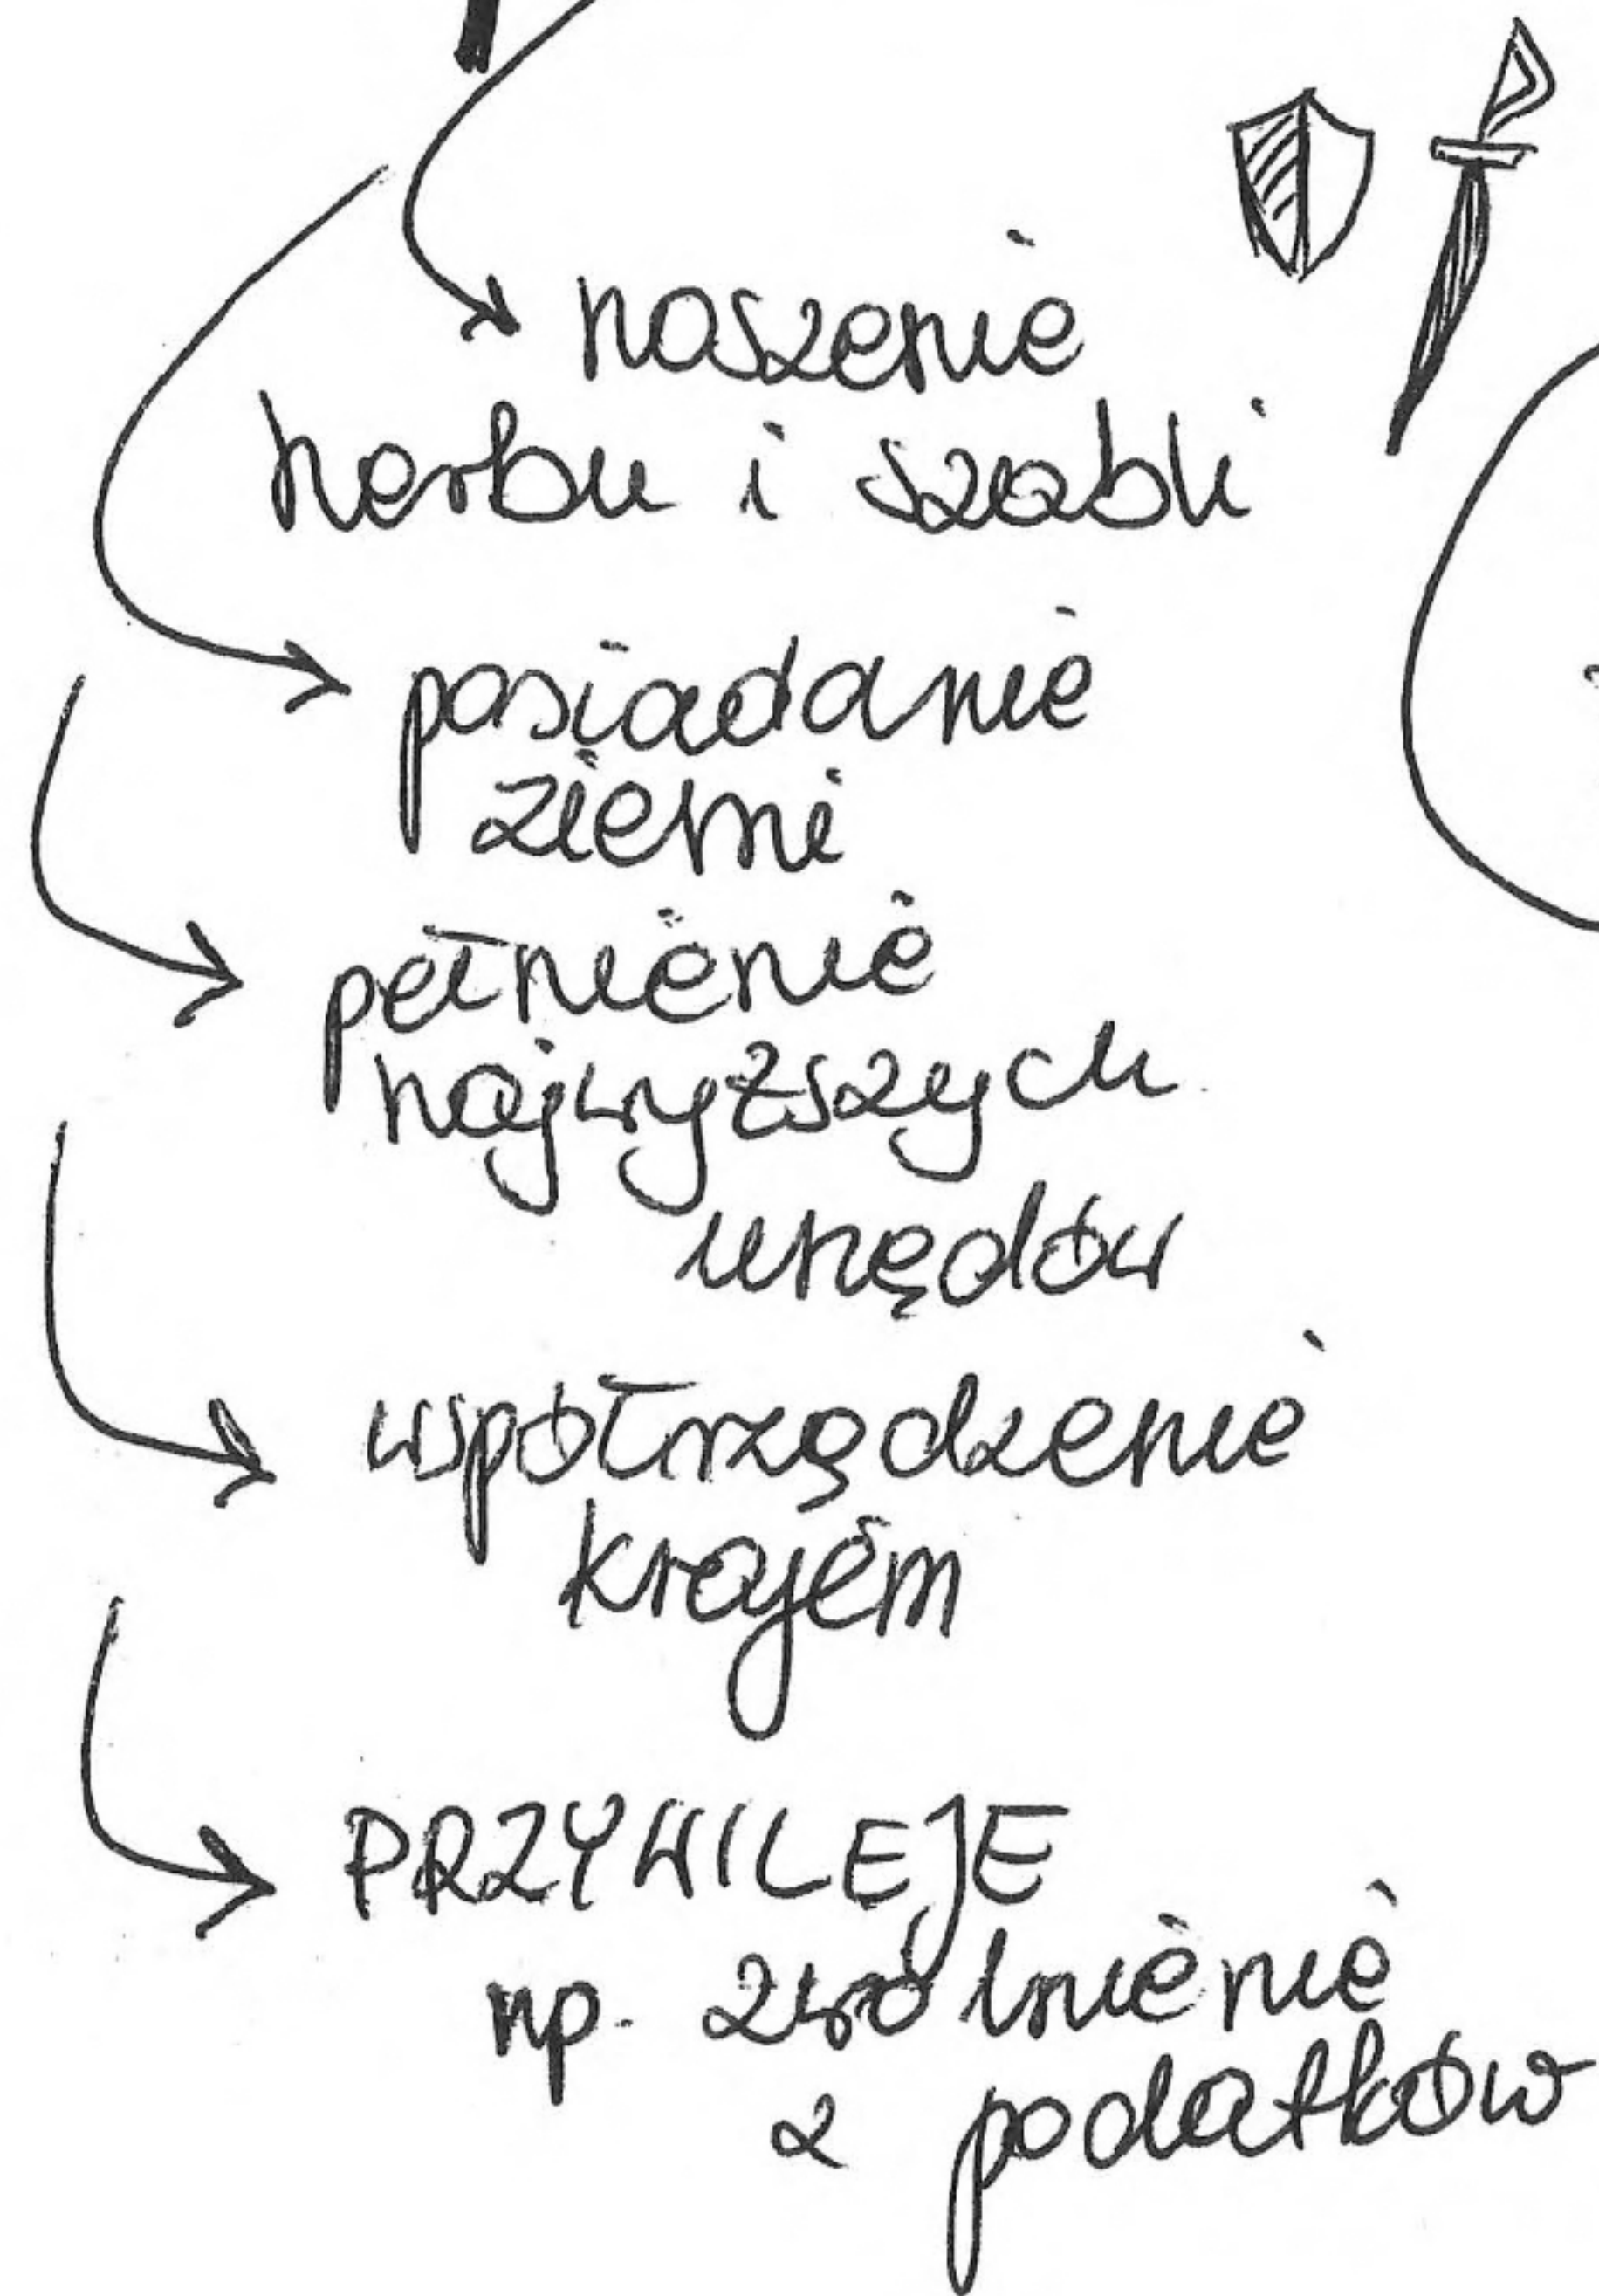 noszenie
herbu i szabli
posiadanie
ziemi
pełnienie
najwyższych
urzędów
współrządzenie
krajem
PRZYWILEJE
np. zwolnienie
z podatków